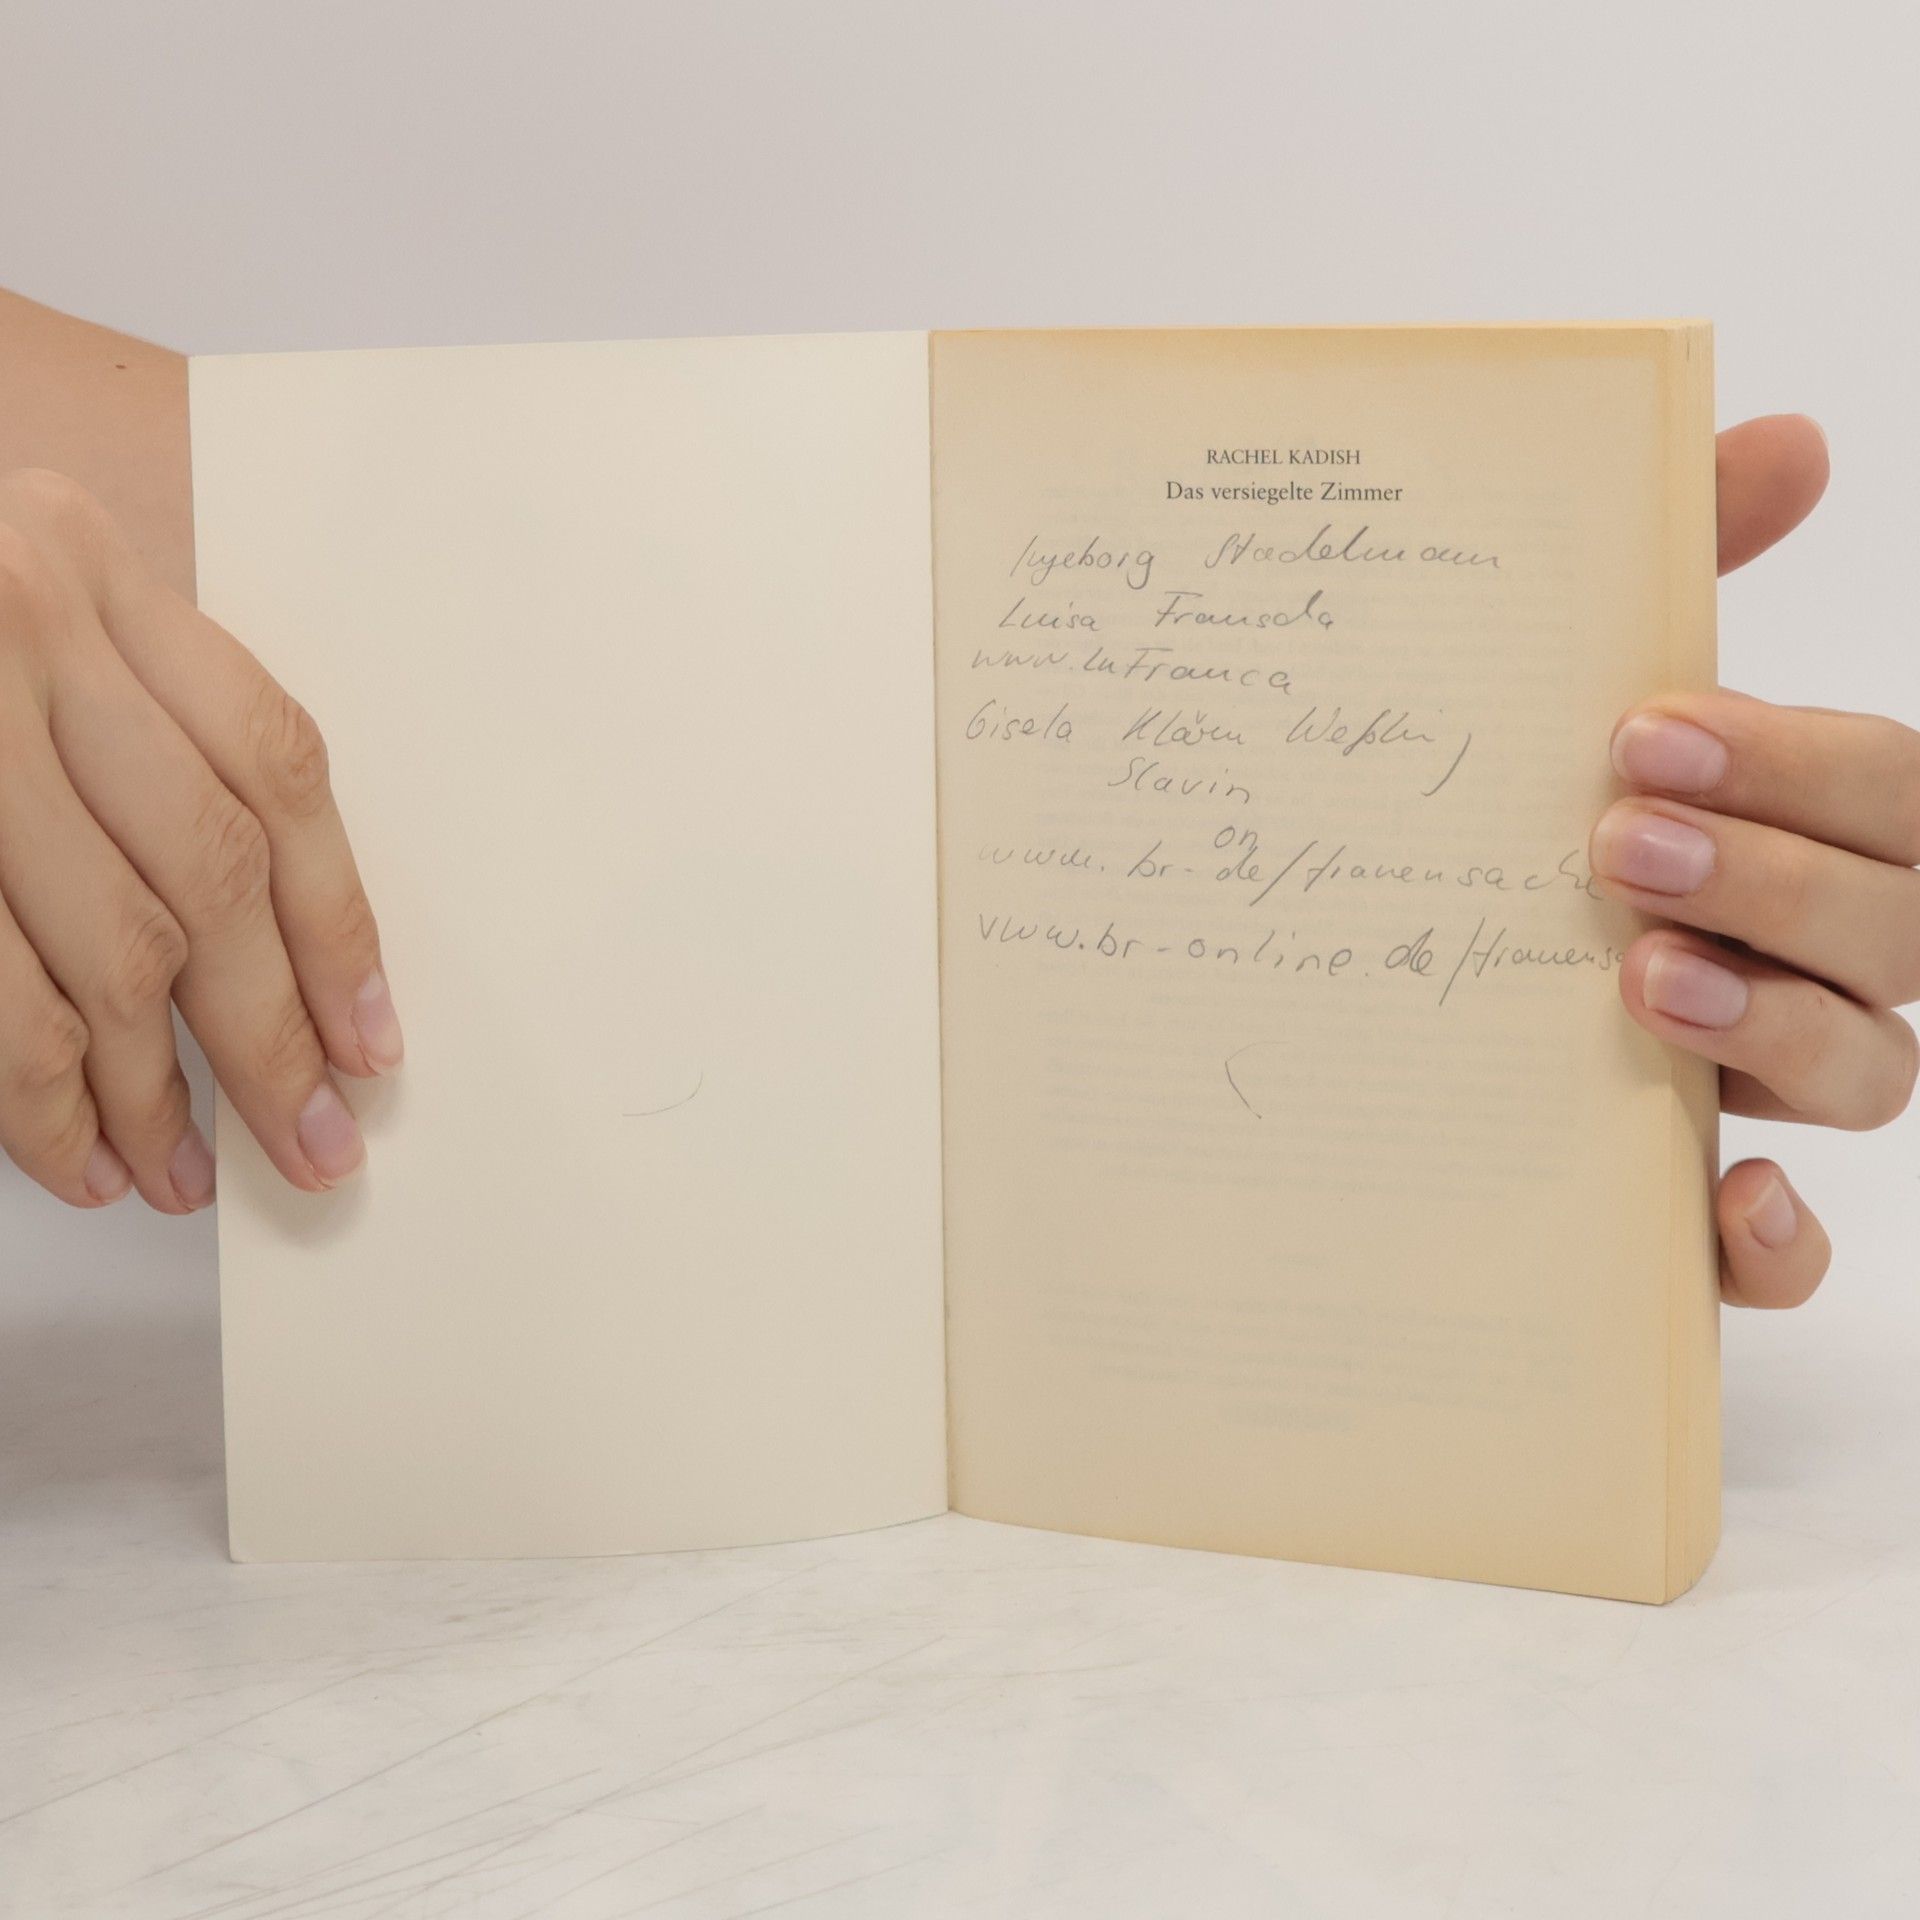 RACHEL KADISH
Das versiegelte Zimmer
Ingeborg Stadelmann
Luisa Fransda
www.luFranca
Gisela
Slavin
on
www. br-de/frauensache
www.br-online.de/frauensa